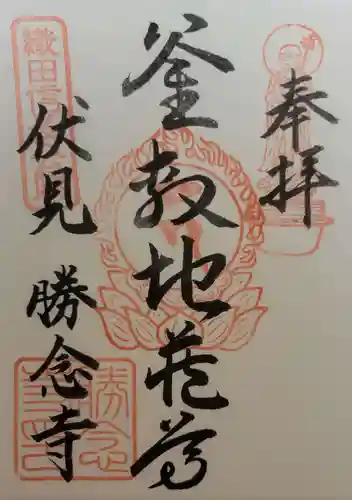 奉拝
釜敷地蔵尊
伏見 勝念寺
勝念寺印